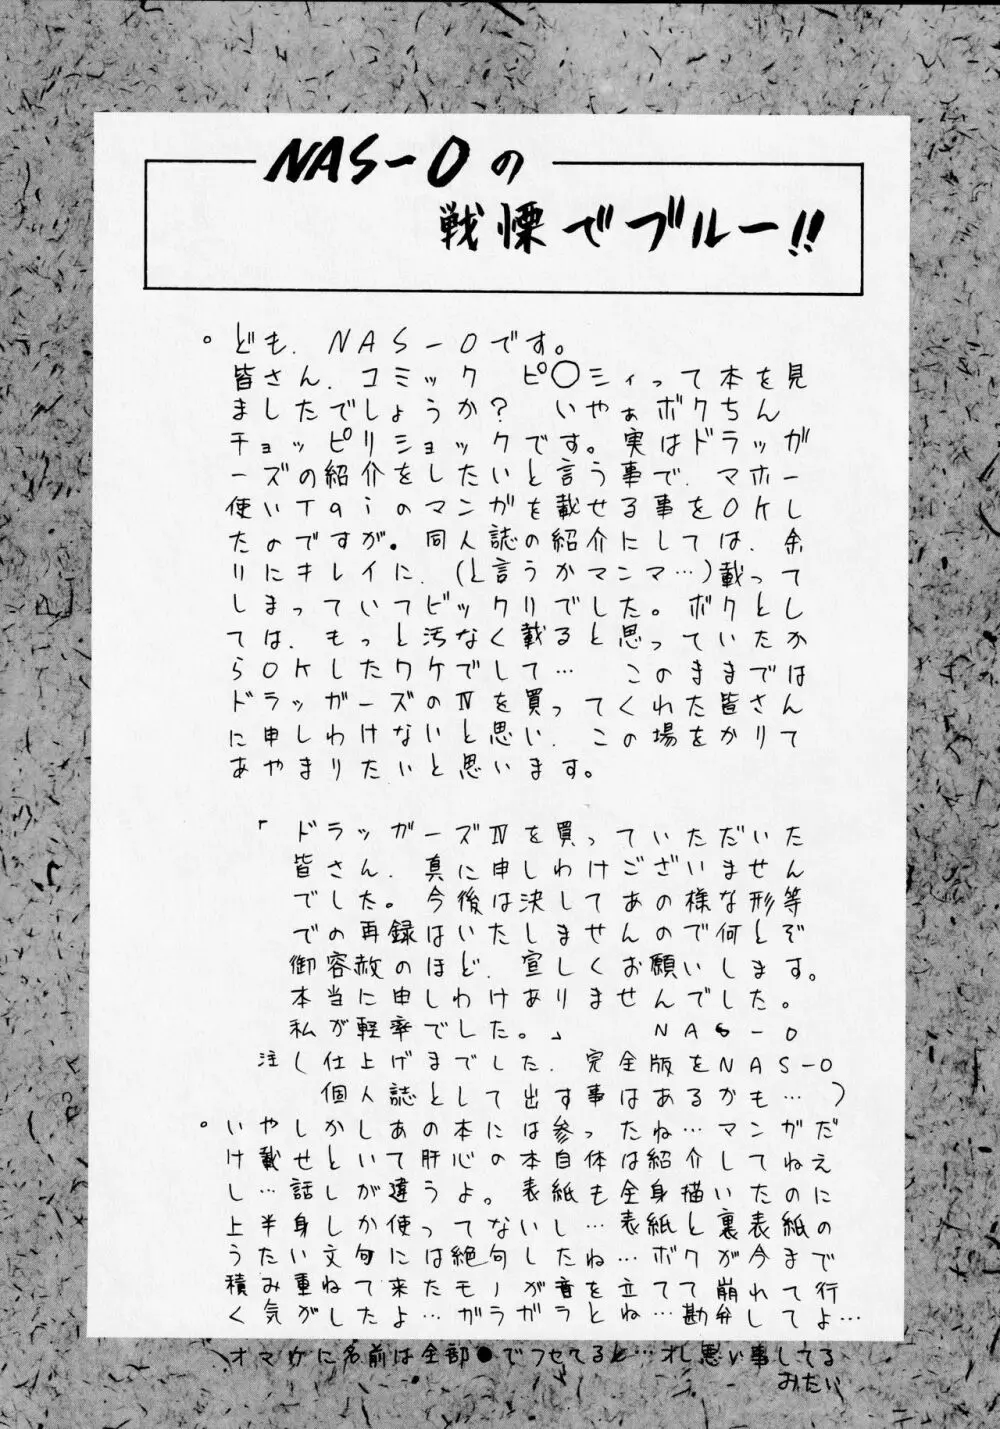 NAS-Oの
戦慄でブルー!!
。ども、NAS-Oです。
皆さん、コミック ピ○シィって本を見
ましたでしょうか? いやぁボクちん
チョッピリショックです。実はドラッガ
ーズの紹介をしたいと言う事で、マホー
使いTaiのマンガを載せる事をOKし
たのですが。同人誌の紹介にしては、余
りにキレイに、(と言うかマンマ…)載って
しまっていてビックリでした。ボクとし
ては、もっと汚なく載ると思っていたか
らOKしたワケでして… このままでは
ドラッガーズのⅣを買ってくれた皆さん
に申しわけないと思い、この場をかりて
あやまりたいと思います。
「ドラッガーズⅣを買っていただいた
皆さん、真に申しわけございません
でした。今後は決してあの様な形等
での再録はいたしませんので何とぞ
御容赦のほど、宜しくお願いします。
本当に申しわけありませんでした。
私が軽率でした。」 NAS-O
注(仕上げまでした、完全版をNAS-O
個人誌として出す事はあるかも…)
。いやしかしあの本には参ったね…マンガだ
け載せといて肝心の本自体は紹介してねえ
し…話しが違うよ。表紙も全身描いたのに
上半身しか使ってないし…表紙と裏表紙の
うたい文句には絶句したね…ボクが今まで
積み重ねて来たモノが音を立てて崩れて行
く気がしたよ…ガラガラとね…勘弁してよ…
オマケに名前は全部●でフせてると…オレ悪い事してる
みたい